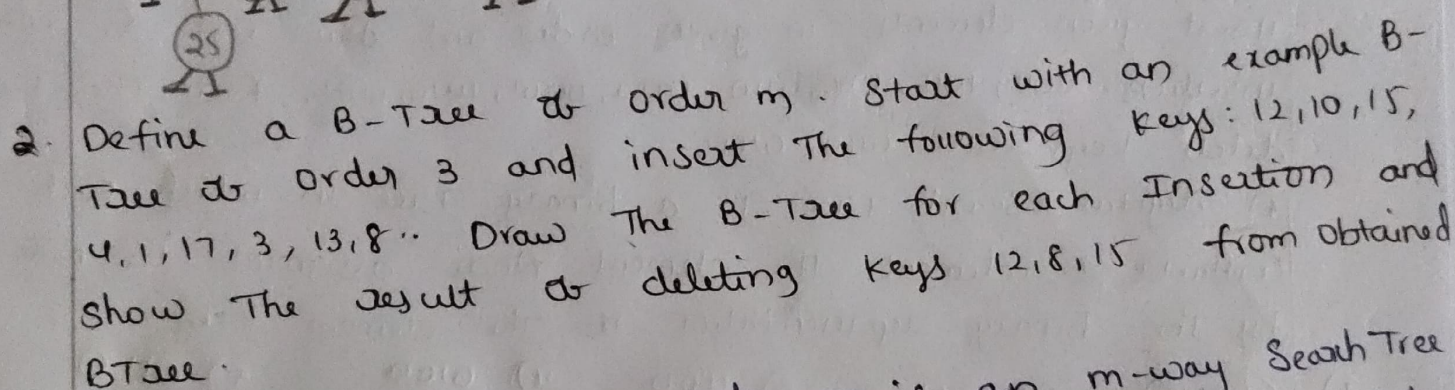 25
2. Define a B-Tree of order m. Start with an example B-
Tree of order 3 and insert The following keys: 12, 10, 15,
4, 1, 17, 3, 13, 8.. Draw The B-Tree for each Insertion and
show The result of deleting keys 12, 8, 15 from obtained
BTree.
m-way Search Tree